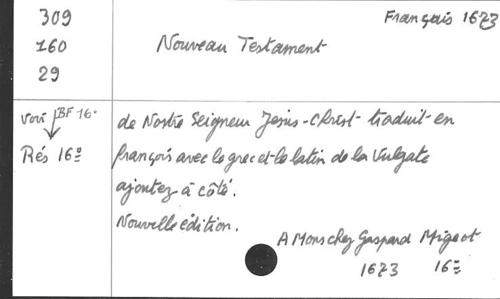 309
Français 1673
160
Nouveau Testament
29
voir BF 16º
de Nostre Seigneur Jesus-Christ traduit en
Rés 16º
français avec le grec et le latin de la Vulgate
ajoutez à côté.
Nouvelle édition.
A Mons chez Gaspard Migeot
1673 16º